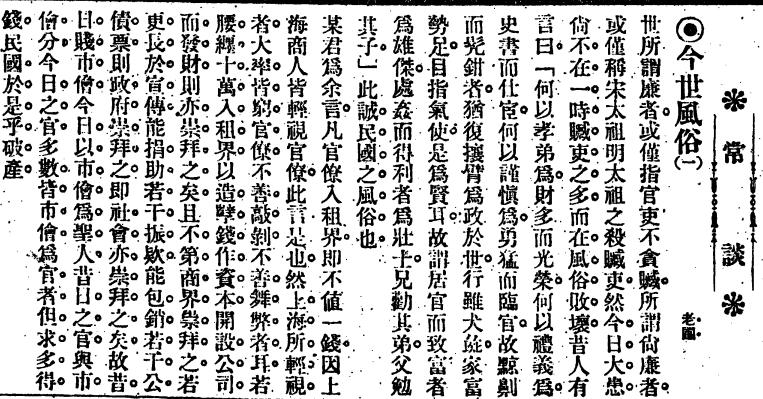 常談
◉今世風俗(一)
老圃
世所謂廉者。或僅指官吏不貪贓。所謂尙廉者。
或僅稱宋太祖明太祖之殺贓吏。然今日大患。
尙不在一時贓吏之多。而在風俗敗壞。昔人有
言曰「何以孝弟爲。財多而光榮。何以禮義爲。
史書而仕宦。何以謹愼爲。勇猛而臨官。故黥劓
而髡鉗者。猶復攘臂爲政於世。行雖犬彘。家富
勢足。目指氣使。是爲賢耳。故謂居官而致富者
爲雄傑。處姦而得利者爲壯士。兄勸其弟。父勉
其子」此誠民國之風俗也。
某君爲余言。凡官僚入租界。卽不値一錢。因上
海商人。皆輕視官僚。此言是也。然上海所輕視
者。大率皆窮官僚。不善敲剝不善舞弊者耳。若
腰纏十萬。入租界以造孽錢作資本。開設公司
而發財。則亦崇拜之矣。且不第商界崇拜之。若
更長於宣傳。能捐助若干振欵。能包銷若干公
債票。則政府崇拜之。卽社會亦崇拜之矣。故昔
日賤市儈。今日以市儈爲聖人。昔日之官與市
儈分。今日之官多數皆市儈。爲官者但求多得
錢。民國於是乎破產。